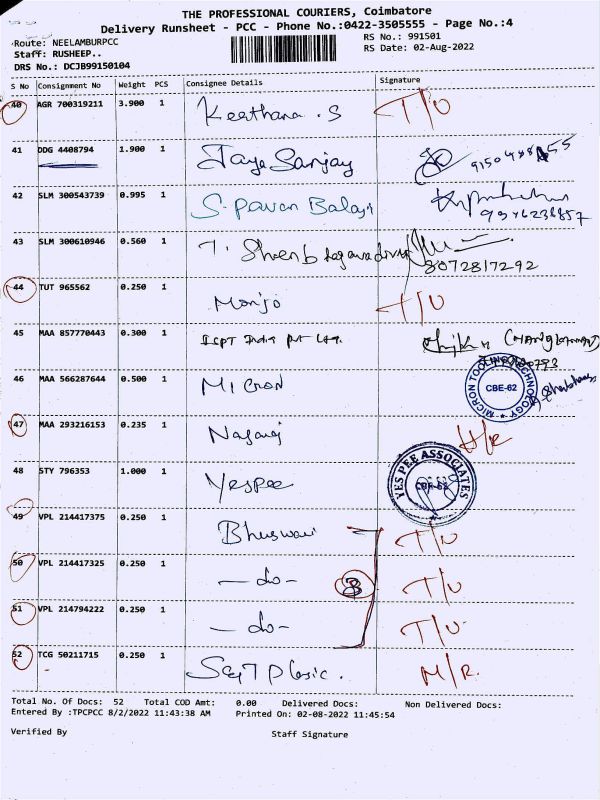 THE PROFESSIONAL COURIERS, Coimbatore
Delivery Runsheet - PCC - Phone No.:0422-3505555 - Page No.:4
Route: NEELAMBURPCC
Staff: RUSHEEP..
DRS No.: DCJB99150104
RS No.: 991501
RS Date: 02-Aug-2022
S No Consignment No Weight PCS Consignee Details Signature
40 AGR 700319211 3.900 1 Keerthana .S T/O
41 DDG 4408794 1.900 1 Jaya Sanjay
42 SLM 300543739 0.995 1 S. Pavan Balaji
9976238857
43 SLM 300610946 0.560 1 T.
8072817292
44 TUT 965562 0.250 1 Manjo T/O
45 MAA 857770443 0.300 1 India Pvt Ltd.
46 MAA 566287644 0.500 1 MICRON MICRON TOOLING TECHNOLOGY CBE-62
47 MAA 293216153 0.235 1 Nagaraj
48 STY 796353 1.000 1 Yespee YES PEE ASSOCIATES CBE-62
49 VPL 214417375 0.250 1 T/O
50 VPL 214417325 0.250 1 — do - 3 T/O
51 VPL 214794222 0.250 1 — do - T/O
52 TCG 50211715 0.250 1 M/R.
Total No. Of Docs: 52 Total COD Amt: 0.00 Delivered Docs: Non Delivered Docs:
Entered By :TPCPCC 8/2/2022 11:43:38 AM Printed On: 02-08-2022 11:45:54
Verified By Staff Signature